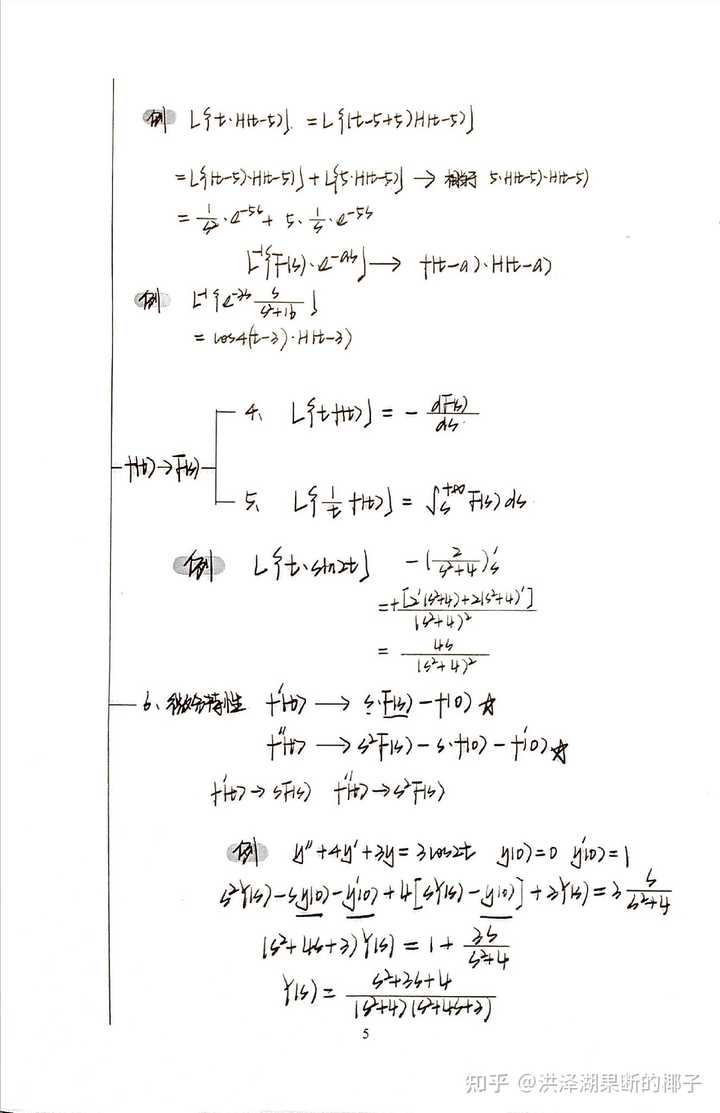 例 L{t·H(t-5)} = L{(t-5+5)H(t-5)}
= L{(t-5)·H(t-5)} + L{5·H(t-5)} → 相当于 5·H(t-5)·H(t-5)
= 1/s²·e^{-5s} + 5·1/s·e^{-5s}
L⁻¹{F(s)·e^{-as}} → f(t-a)·H(t-a)
例 L⁻¹{e^{-3s} s/(s²+16)}
= cos4(t-3)·H(t-3)
4、 L{t f(t)} = - dF(s)/ds
f(t)→F(s)
5、 L{1/t f(t)} = ∫_s^{+∞} F(s)ds
例 L{t·sin2t} -(2/(s²+4))'_s
= +[2'(s²+4)+2(s²+4)']/(s²+4)²
= 4s/(s²+4)²
6、微分特性 f'(t) → s·F(s)-f(0) ☆
f''(t) → s²F(s)-s·f(0)-f'(0) ☆
f'(t)→sF(s) f''(t)→s²F(s)
例 y''+4y'+3y=3cos2t y(0)=0 y'(0)=1
s²Y(s)-sy(0)-y'(0)+4[sY(s)-y(0)]+3Y(s)=3 s/(s²+4)
(s²+4s+3)Y(s)=1+3s/(s²+4)
Y(s)=(s²+3s+4)/((s²+4)(s²+4s+3))
5
知乎 @洪泽湖果断的椰子